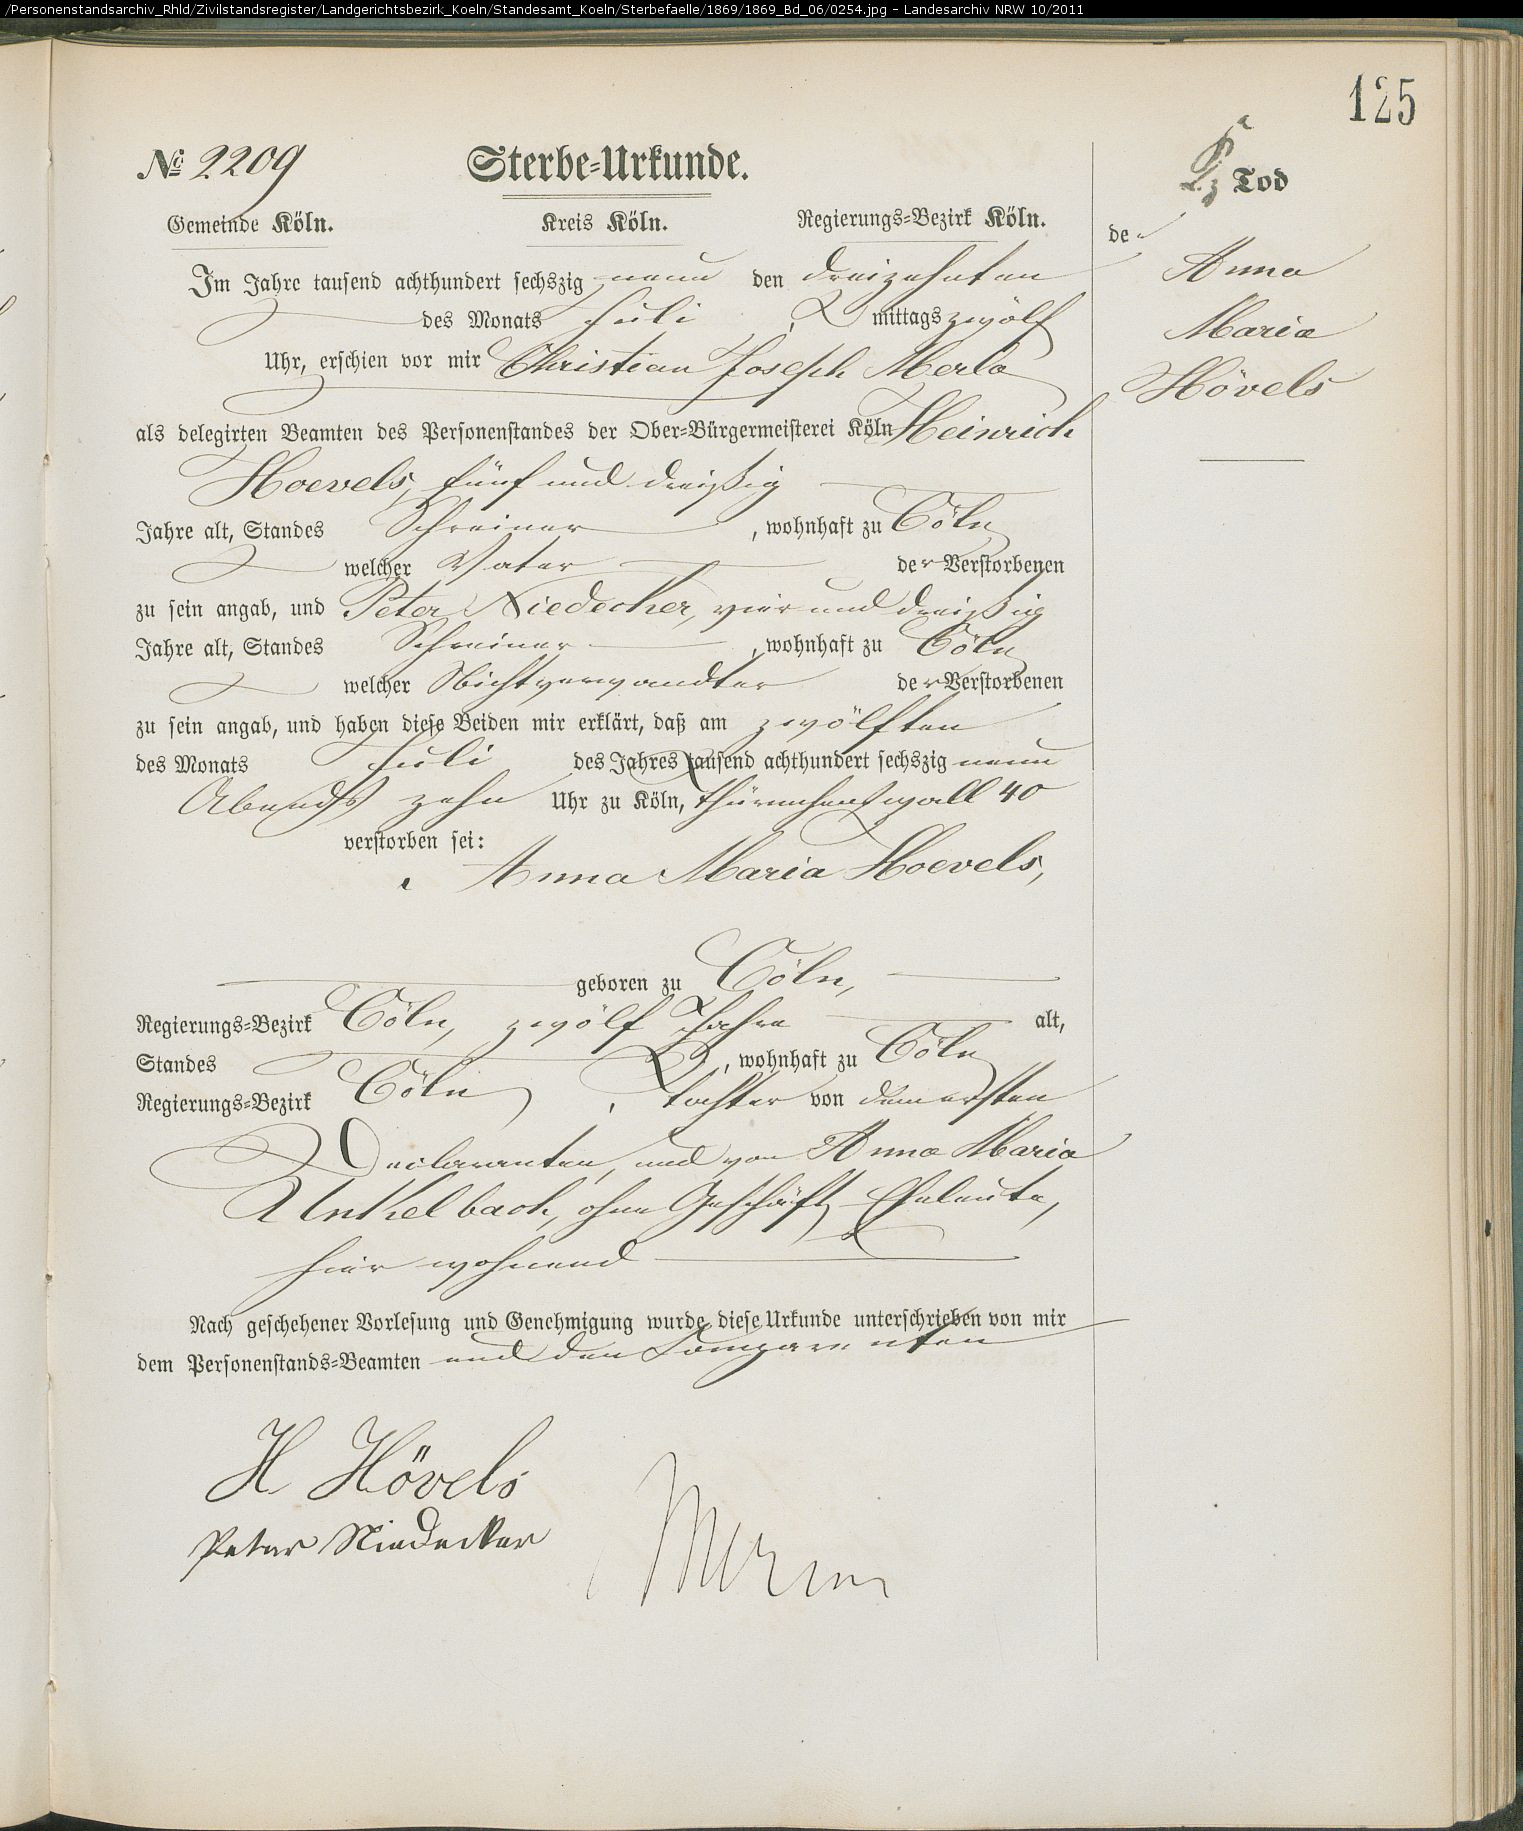 /Personenstandsarchiv_Rhld/Zivilstandsregister/Landgerichtsbezirk_Koeln/Standesamt_Koeln/Sterbefaelle/1869/1869_Bd_06/0254.jpg - Landesarchiv NRW 10/2011
125
№ 2209 Sterbe-Urkunde.
Gemeinde Köln. Kreis Köln. Regierungs-Bezirk Köln.
Im Jahre tausend achthundert sechszig neun den dreizehnten
des Monats Juli, mittags zwölf
Uhr, erschien vor mir Christian Joseph Merlo
als delegirten Beamten des Personenstandes der Ober-Bürgermeisterei Köln Heinrich
Hoevels, fünf und dreißig
Jahre alt, Standes Schreiner, wohnhaft zu Cöln
welcher Vater der Verstorbenen
zu sein angab, und Peter Niedecker, vier und dreißig
Jahre alt, Standes Schreiner, wohnhaft zu Cöln
welcher Nichtverwandter der Verstorbenen
zu sein angab, und haben diese Beiden mir erklärt, daß am zwölften
des Monats Juli des Jahres tausend achthundert sechszig neun
Abends zehn Uhr zu Köln, Thürmchenswall 40
verstorben sei:
Anna Maria Hoevels,
geboren zu Cöln,
Regierungs-Bezirk Cöln, zwölf Jahre alt,
Standes , wohnhaft zu Cöln
Regierungs-Bezirk Cöln, Tochter von dem ersten
Declaranten, und von Anna Maria
Unkelbach, ohne Geschäft, Eheleute,
hier wohnend
Nach geschehener Vorlesung und Genehmigung wurde diese Urkunde unterschrieben von mir
dem Personenstands-Beamten und den Comparenten
H Hövels
Peter Niedecker
Tod
der
Anna
Maria
Hövels